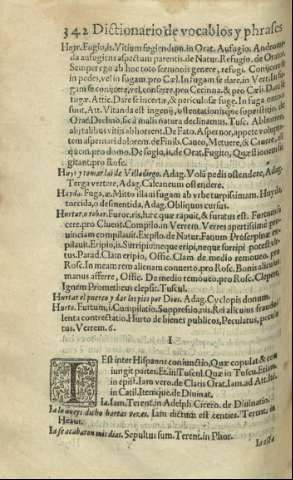 342 Dictionario de vocablos y phrases
Huyr. Fugio, is. Vitium fugiendum. in Orat. Aufugio. Andro
da aufugiens aspectum parentis. de Natur. Refugio. de Orator.
Semper ego ab hoc toto sermonis genere, refugi.
in pedes, vel in fugam. pro Cæl. In fugam se dare, in Verr.
gam se conijcere, vel, conferre. pro Cecinna. & pro Cæl. Dare se
fugæ. Attic. Dare se incertæ, & periculosæ fugæ. In fuga
sunt. Att. Vitanda est ingenij, ostentationisque suspitio. de
Orat. Declino, sic à malis natura declinamus. Tusc. Abhorreo,
ab istalibus vitijs abhorrent. De Fato. Aspernor, appetere voluptatem
aspernari dolorem. de Finib. Caueo, Metuere, & Cauere,
quem. pro domo. Defugio, is, de Orat. Fugito, Quæstionem
gitant. pro Rosc.
Huyr y tomar las de Villadiego. Adag. Volâ pedis ostendere, Adag.
Terga vertere. Adag. Calcaneum ostendere.
Huyda. Fuga, æ. Mitto illam fugam ab vrbe turpissimam. Huyda
torcida, o desmentida, Adag. Obliquus cursus.
Hurtar, o robar. Furor, ris, hæc quæ rapuit, & furatus est.
cere. pro Cluent. Compilo. in Verrem. Verres apertissime
uinciam compilauit. Expilo. de Natur. Fanum Proserpinæ
pilauit. Eripio, is. Surripio, neque eripi, neque surripi potest
tus. Parad. Clam eripio, Offic. Clam de medio remoueo. pro
Rosc. In meam rem alienam conuerto. pro Rosc. Bonis alicuius
manus afferre, Offic. De medio remoueo. pro Rosc. Clepo,
Ignem Prometheus clepsit. Tuscul.
Hurtar el puerco y dar los pies por Dios. Adag. Cyclopis donum.
Hurto. Furtum, i. Compilatio. Suppressio, nis. Rei alicuius
lenta contrectatio. Hurto de bienes publicos, Peculatus,
tus. Verrem. 6.
I
I Est inter Hispanos coniunctio, Quæ copulat & con
iungit partes. Et. in Tuscul. Quæ in Tuscu. Etiam.
in epist. Iam vero. de Claris Orat. Iam. ad Att.
in Catil. Itemque. de Diuinat.
Ia. Iam. Terent. in Adelph. Cicero. de Diuinatio.
Ia lo aueys dicho hartas vezes. Iam dictum est centies. Terent. in
Heaut.
Ia se acabaron mis dias. Sepultus sum. Terent. in Phor.